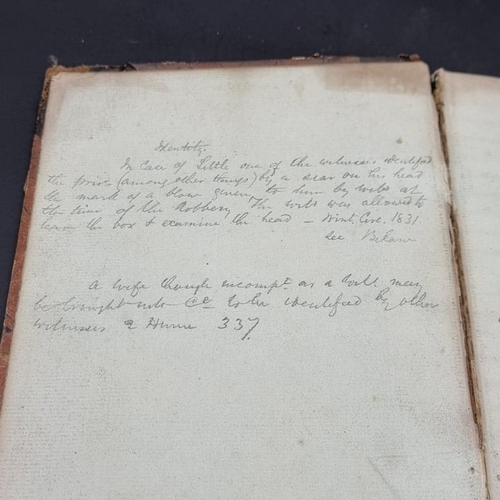 Identity.
In Case of Little one of the witnesses identified
the prisr. (among other things) by a scar on his head
the mark of a blow given to him by witns at
the time of the Robbery. The witns was allowed to
leave the box & examine the head – Wint. Circ. 1831
see
A wife though incompt. as a witns. may
be brought into Ct to be identified by other
witnesses 2 Hume 337.